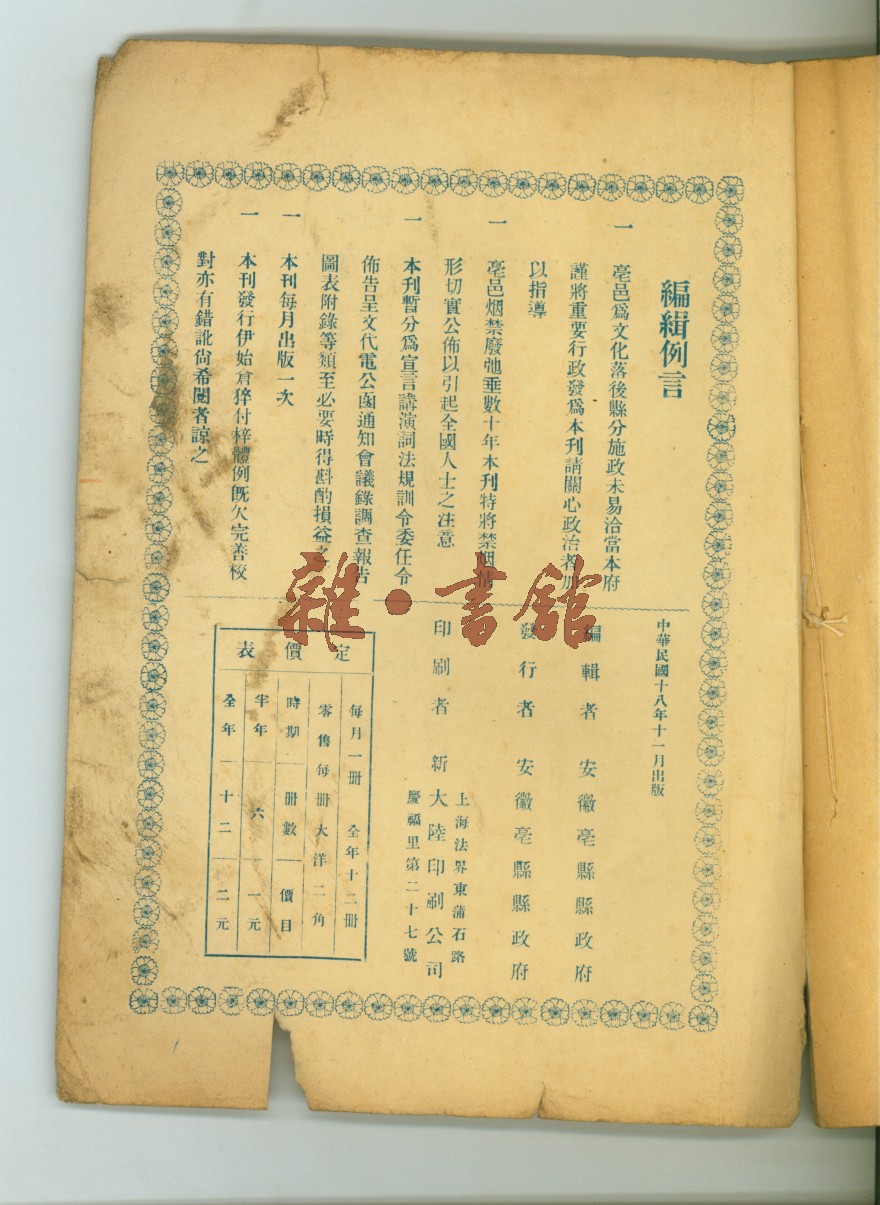 編緝例言
一 亳邑爲文化落後縣分施政未易洽當本府
謹將重要行政發爲本刊請關心政治者加
以指導
一 亳邑烟禁廢弛垂數十年本刊特將禁烟情
形切實公佈以引起全國人士之注意
一 本刊暫分爲宣言講演詞法規訓令委任令
佈告呈文代電公函通知會議錄調查報告
圖表附錄等類至必要時得斟酌損益之
一 本刊每月出版一次
一 本刊發行伊始倉猝付梓體例既欠完善校
對亦有錯訛尙希閱者諒之
中華民國十八年十一月出版
編輯者 安徽亳縣縣政府
發行者 安徽亳縣縣政府
印刷者 新大陸印刷公司
上海法界東蒲石路
慶福里第二十七號
定價表
每月一册 全年十二册
零售每册大洋二角
時期 册數 價目
半年 六 一元
全年 十二 二元
雜·書館